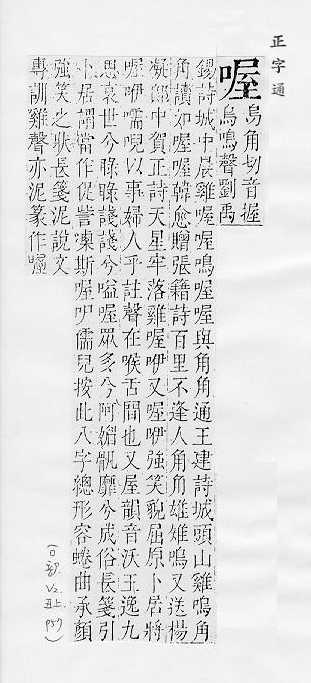 正字通
喔
烏角切音握
烏鳴聲劉禹
錫詩城中晨雞喔喔鳴喔喔與角角通王建詩城頭山雞鳴角
角讀如喔喔韓愈贈張籍詩百里不逢人角角雄雉鳴又送楊
凝郎中賀正詩天星牢落雞喔咿又喔咿強笑貌屈原卜居將
喔咿嚅唲以事婦人乎註聲在喉舌間也又屋韻音沃王逸九
思哀世兮睩睩諓諓兮嗌喔眾多兮阿媚骪靡兮成俗長箋引
卜居謂當作促訾慄斯喔咿儒兒按此八字總形容蜷曲承顏
強笑之狀長箋泥說文
專訓雞聲亦泥篆作喔
(口部
丑上